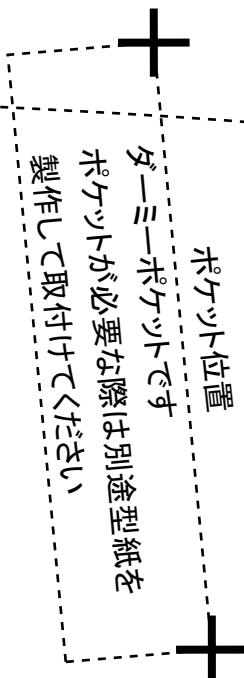 ポケット位置
ダーミーポケットです
ポケットが必要な際は別途型紙を
製作して取付けてください